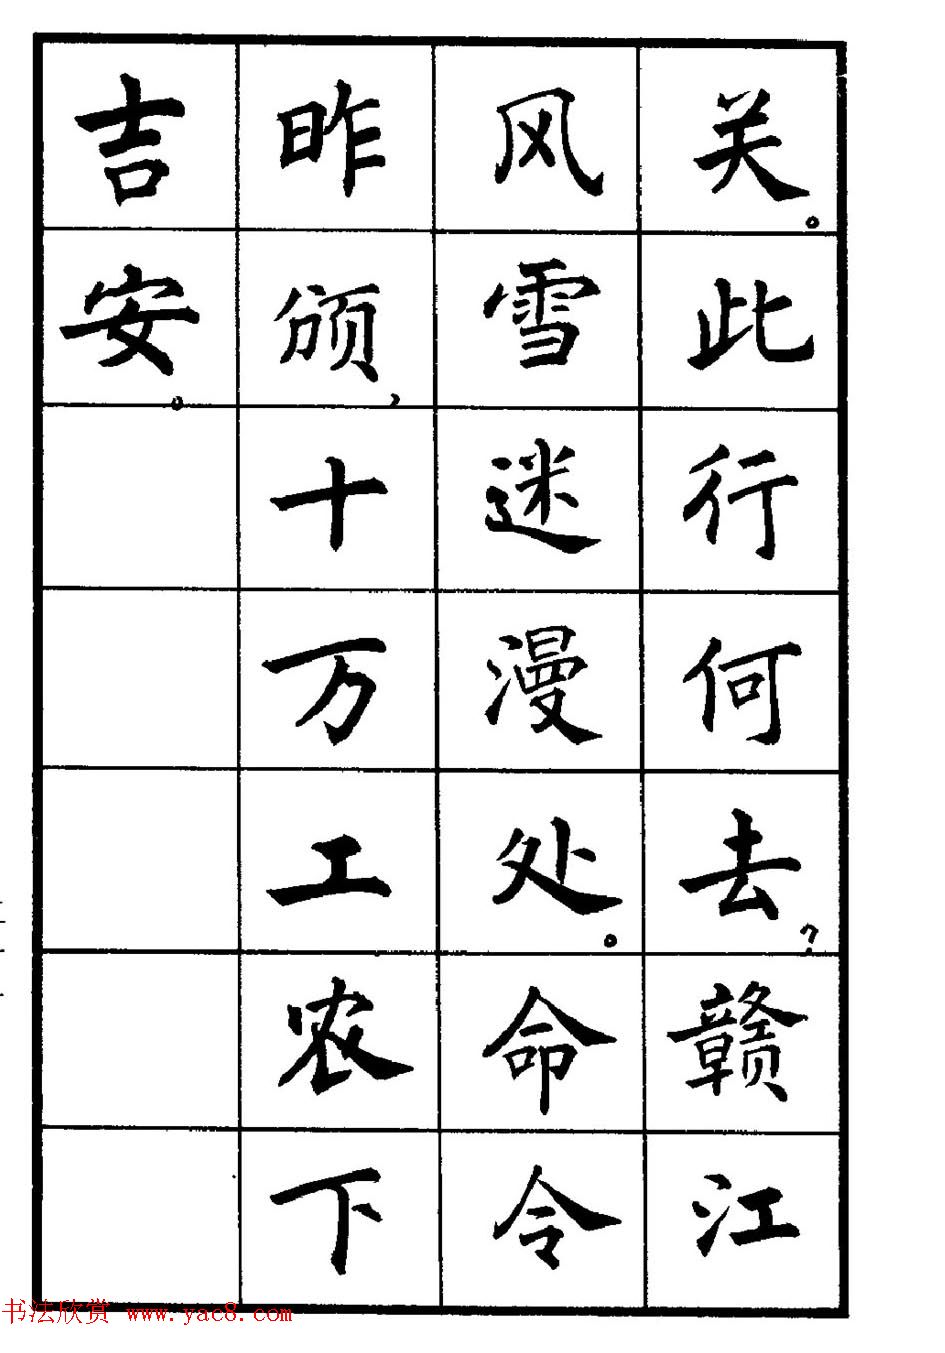 关。此行何去?赣江
风雪迷漫处。命令
昨颁,十万工农下
吉安。
书法欣赏 www.yac8.com